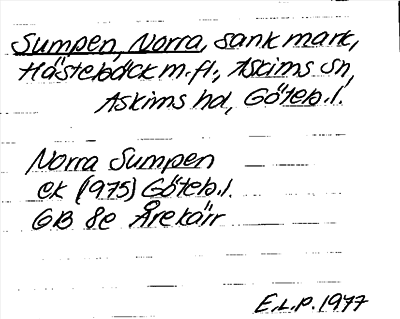 Sumpen, Norra, sank mark,
Hästebäck m.fl., Askims sn,
Askims hd, Göteb.l.
Norra Sumpen
ek (975) Göteb.l.
GB 8e Årekärr
E.L.P. 1977